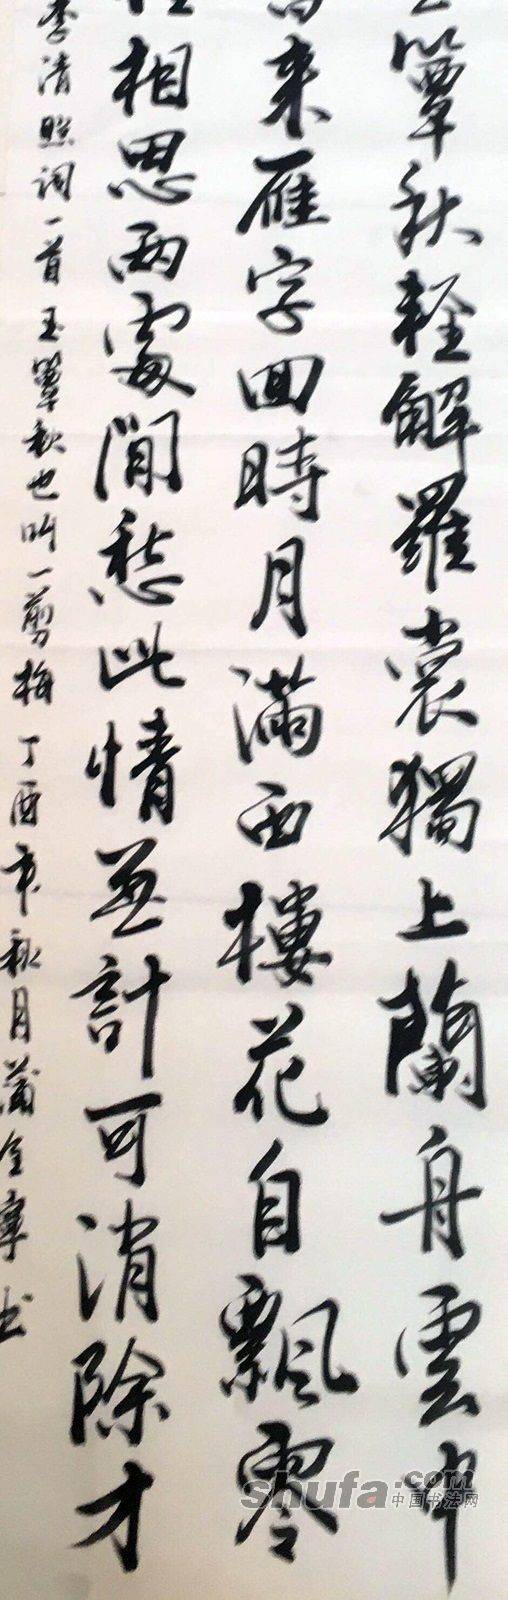 簟秋輕解羅裳獨上蘭舟雲中
来雁字回時月滿西樓花自飄零
相思兩處閒愁此情無計可消除才
李清照词一首玉簟秋也叫一剪梅丁酉年秋月蒲金书
shufa.com
中国书法网